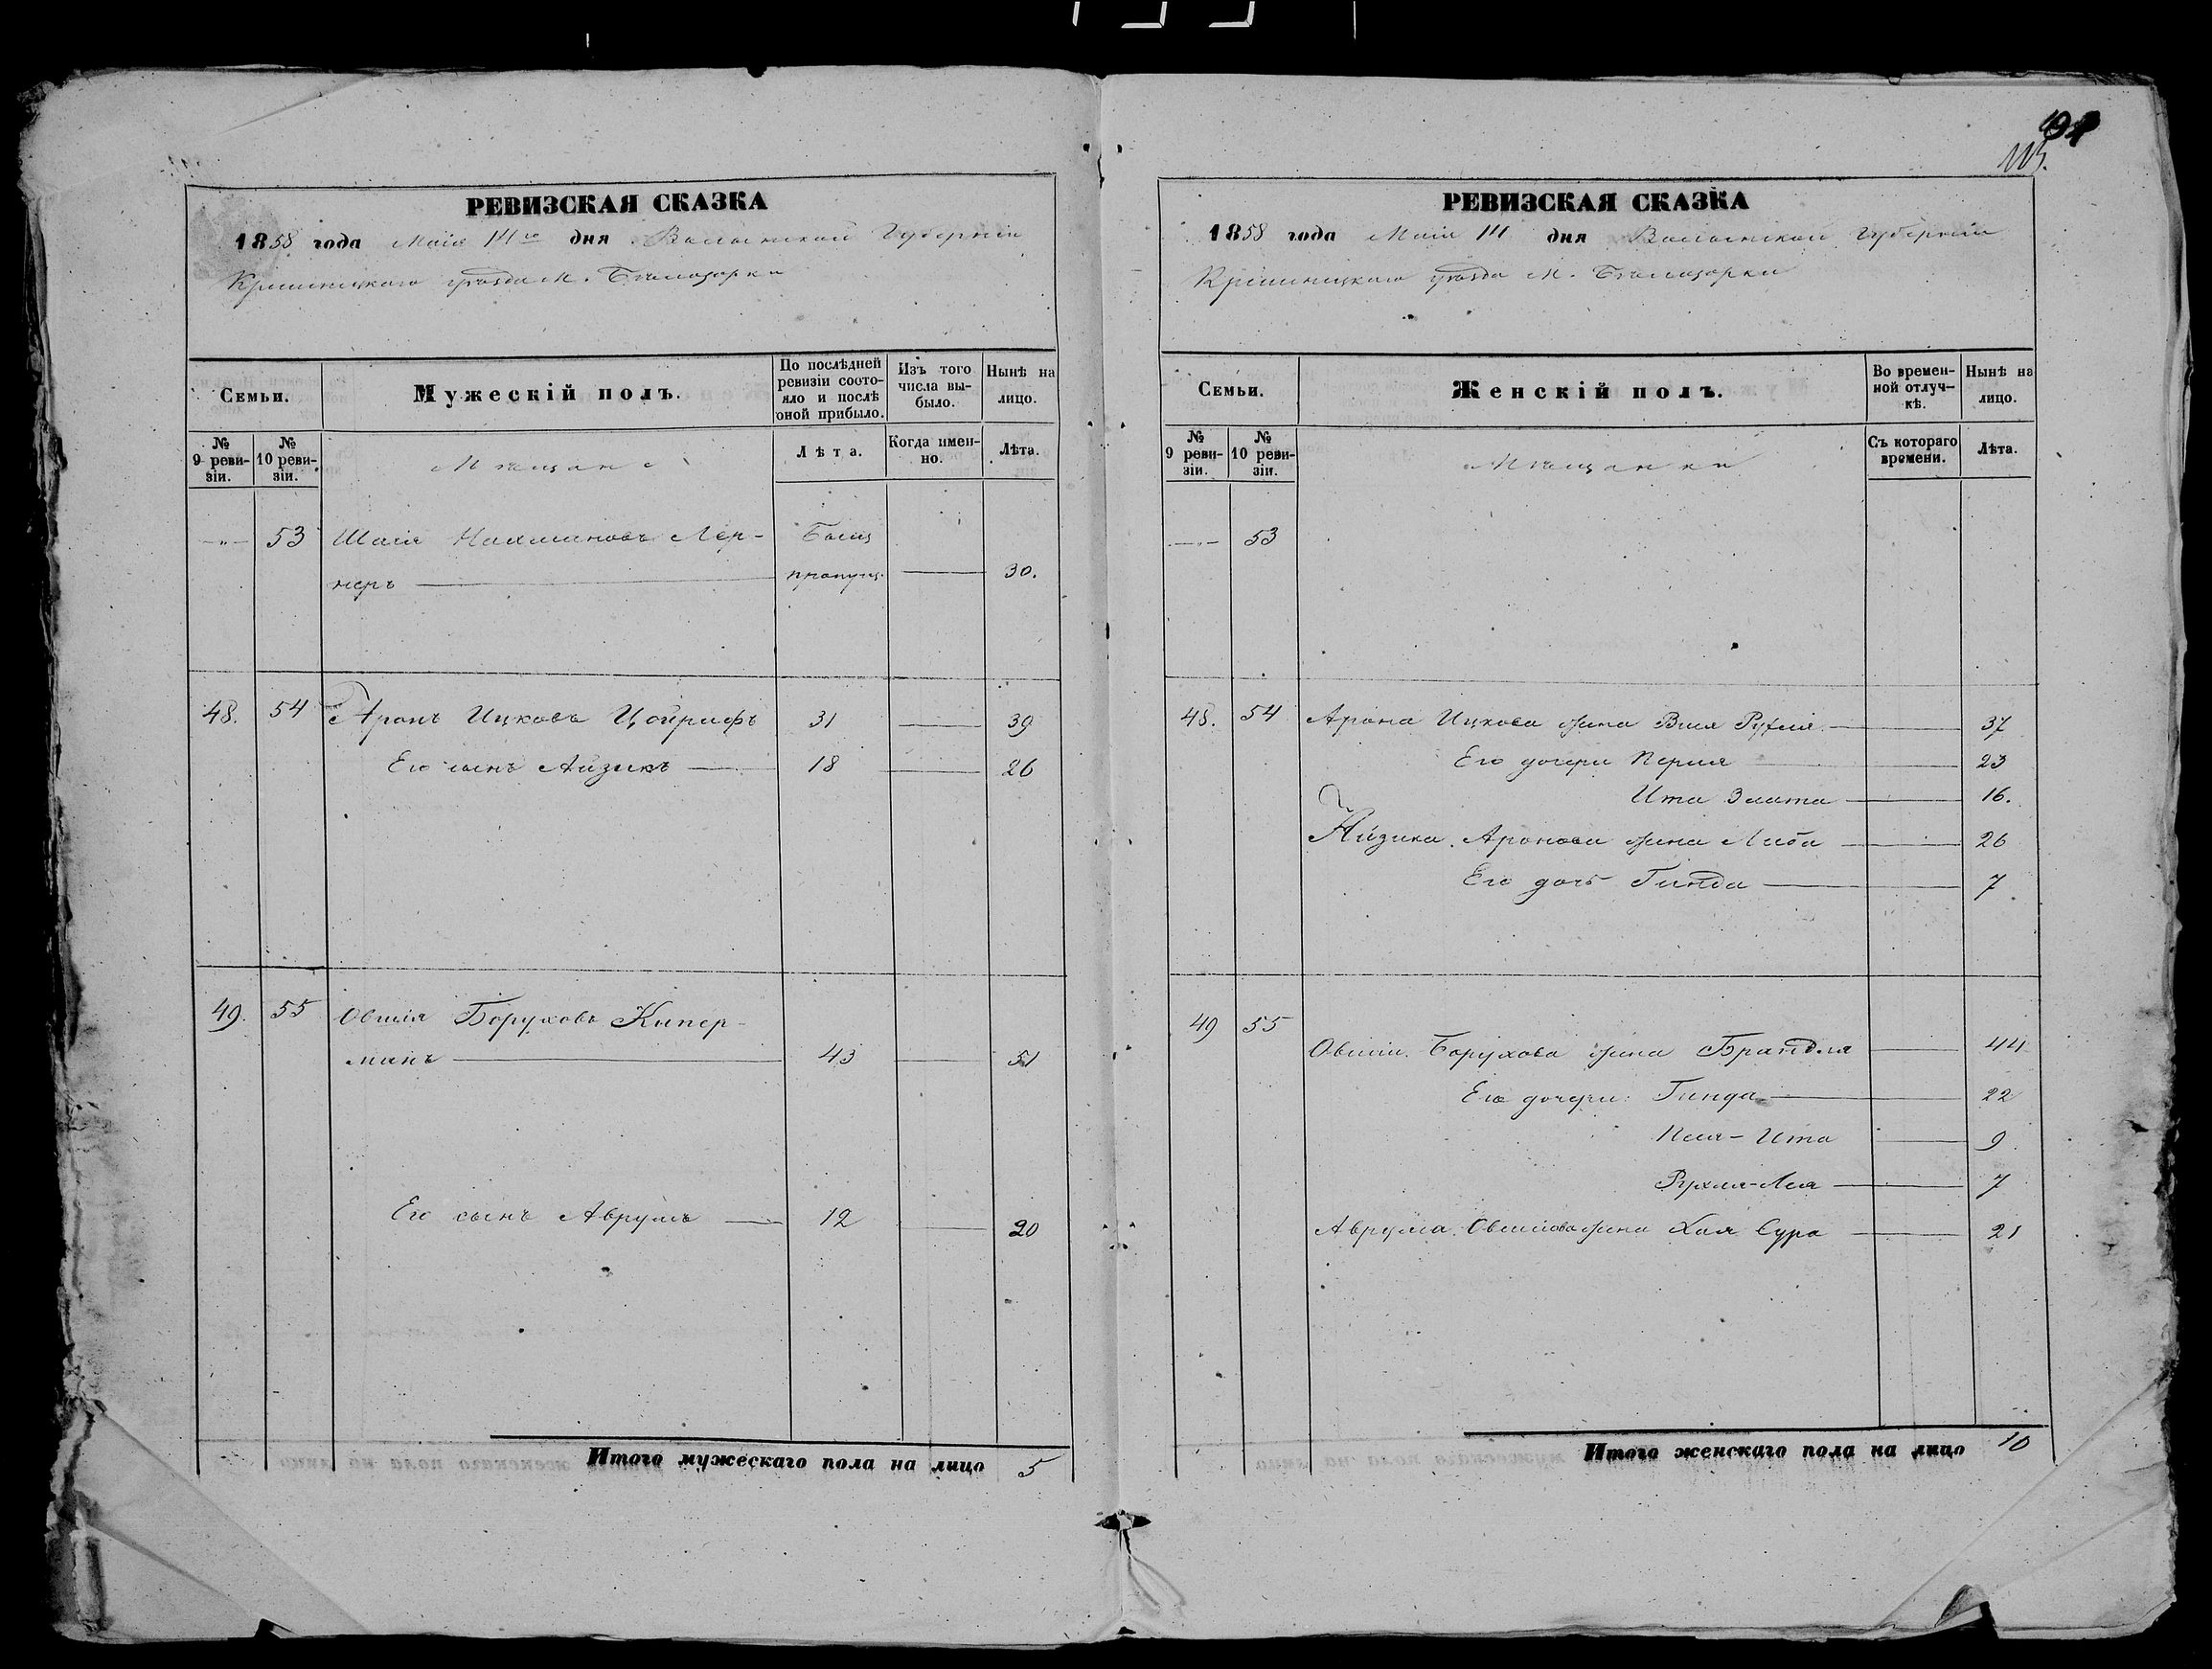 115.
РЕВИЗСКАЯ СКАЗКА
1858 года Маія 14го дня Волынской Губерніи
Кременецкаго уѣзда М. Бѣлозорки
Семьи.
Мужескій полъ.
По послѣдней ревизіи состояло и послѣ оной прибыло.
Изъ того числа выбыло.
Нынѣ на лицо.
№ 9 ревизіи.
№ 10 ревизіи.
Мѣщане
Лѣта.
Когда именно.
Лѣта.
—„— 53 Шаія Нахмановъ Лер- Былъ
неръ пропущ. 30.
48. 54 Аронъ Ицковъ Цойрифъ 31 39
Его сынъ Айзикъ 18 26
49. 55 Овшія Боруховъ Кипер-
манъ 43 51
Его сынъ Аврумъ 12 20
Итого мужескаго пола на лицо 5
РЕВИЗСКАЯ СКАЗКА
1858 года Маія 14 дня Волынской Губерніи
Кременецкаго уѣзда М. Бѣлозорки
Семьи.
Женскій полъ.
Во временной отлучкѣ.
Нынѣ на лицо.
№ 9 ревизіи.
№ 10 ревизіи.
Мѣщанки
Съ котораго времени.
Лѣта.
—„— 53
48. 54 Арона Ицкова жена Рухля 37
Его дочери Перля 23
Ита Злата 16.
Айзика Аронова жена Либа 26
Его дочь Гинда 7
49 55
Овшіи Борухова жена Брандля 44
Его дочери: Гинда 22
Ита 9
Рухля-Лея 7
Аврума Овшіова жена Хая Сура 21
Итого женскаго пола на лицо 10